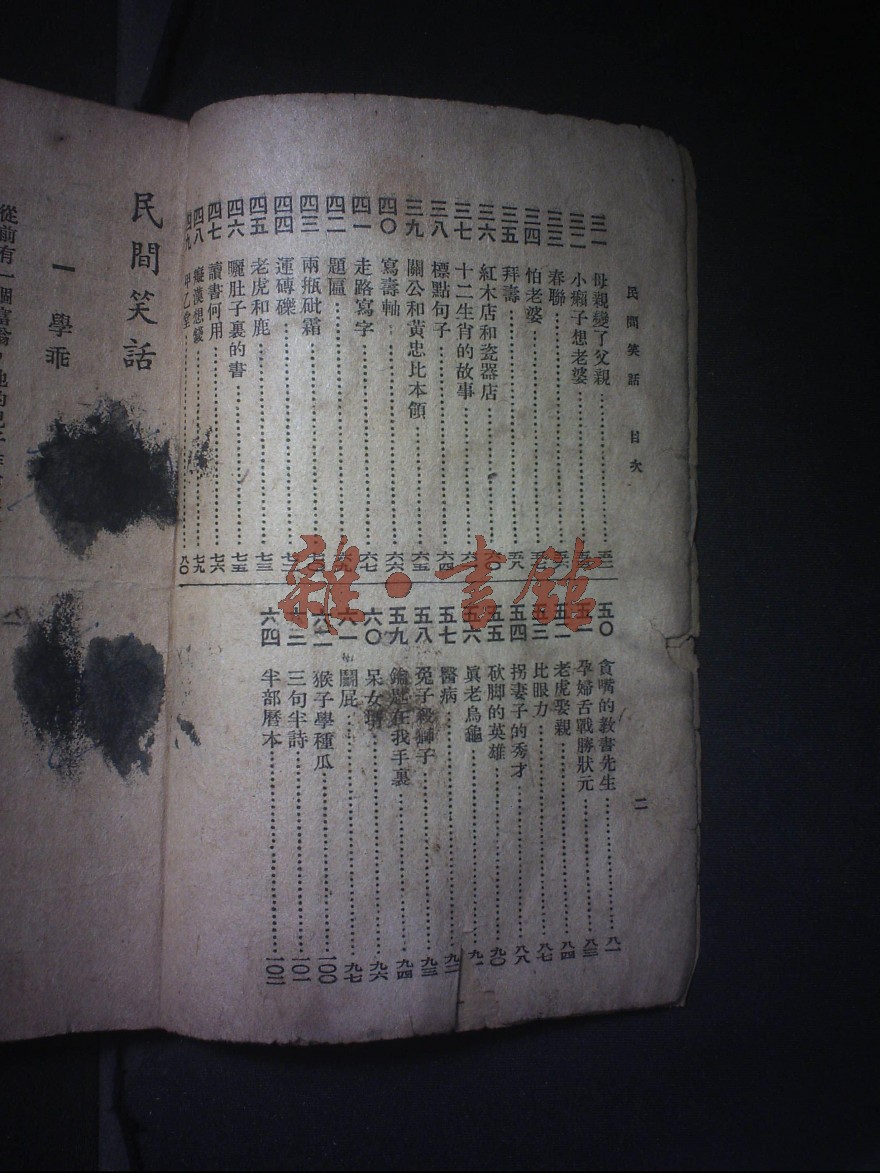 民間笑話　目次
三一　母親變了父親
三二　小癩子想老婆
三三　春聯
三四　怕老婆
三五　拜壽　五八
三六　紅木店和瓷器店
三七　十二生肖的故事
三八　標點句子　六四
三九　關公和黃忠比本領　六五
四〇　寫壽軸　六六
四一　走路寫字　六七
四二　題匾
四三　兩瓶砒霜
四四　運磚礫
四五　老虎和鹿　七三
四六　曬肚子裏的書　七五
四七　讀書何用　七六
四八　癡漢想錢　七九
四九　甲乙堂　八〇
五〇　貪嘴的教書先生　八一
五一　孕婦舌戰勝狀元　八三
五二　老虎娶親　八四
五三　比眼力　八七
五四　拐妻子的秀才　八八
五五　砍脚的英雄　九〇
五六　眞老烏龜　九一
五七　醫病　九二
五八　兔子殺獅子　九三
五九　鑰匙在我手裏　九四
六〇　呆女壻　九六
六一　鬭屁　九七
六二　猴子學種瓜　一〇〇
六三　三句半詩　一〇一
六四　半部曆本　一〇二
二
民間笑話
一　學乖
從前有一個富翁，他的兒子
雜·書館